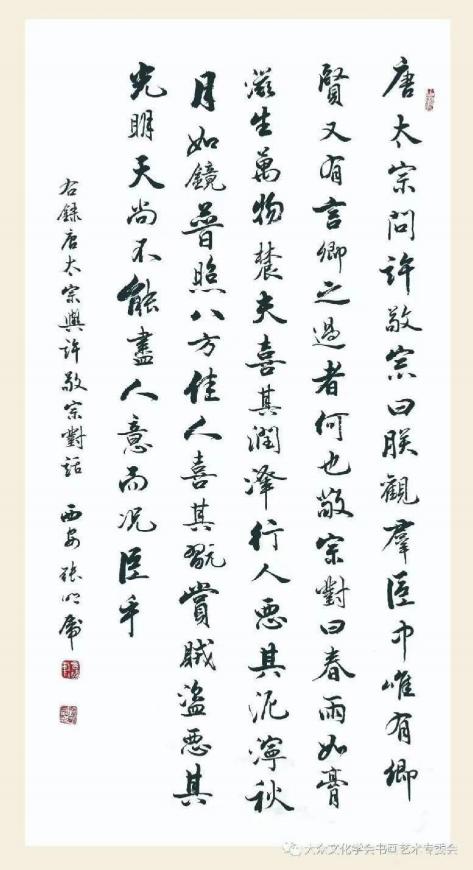 唐太宗問許敬宗曰朕觀羣臣中唯有卿
賢又有言卿之過者何也敬宗對曰春雨如膏
滋生萬物農夫喜其潤澤行人惡其泥濘秋
月如鏡普照八方佳人喜其翫賞賊盗惡其
光明天尚不能盡人意而况臣乎
右錄唐太宗與許敬宗對話 西安張
大众文化学会书画艺术专委会